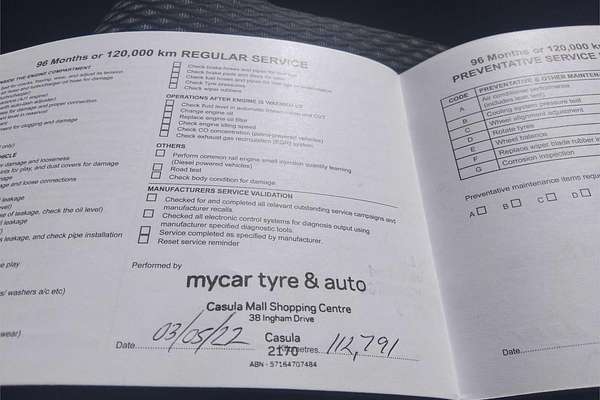 96 Months or 120,000 km REGULAR SERVICE
INSIDE THE ENGINE COMPARTMENT
Check brake hoses and pipes for
Check brake pads and discs for wear
Check fuel hoses and pipes for
Check Tyre pressures
Check wiper rubbers
OPERATIONS AFTER ENGINE IS WARMED UP
Check fluid level in automatic transmission and CVT
Change engine oil
Replace engine oil filter
Check engine idling speed
Check CO concentration (petrol-powered vehicles)
Check exhaust gas recirculation (EGR) system
OTHERS
Perform common rail engine small injection quantity learning
(Diesel powered vehicles)
Road test
Check body condition for damage
MANUFACTURERS SERVICE VALIDATION
Checked for and completed all relevant outstanding service campaigns and
manufacturer recalls.
Checked all electronic control systems for diagnosis output using
manufacturer specified diagnostic tools.
Service completed as specified by manufacturer.
Reset service reminder
Performed by
mycar tyre & auto
Casula Mall Shopping Centre
38 Ingham Drive
Casula
2170
Date 03/05/22
metres 112,791
ABN - 57164707484
only)
damage and looseness
for play, and dust covers for damage
and loose connections
leakage
of leakage, check the oil level)
leakage
leakage, and check pipe installation
play
washers a/c etc)
wear)
96 Months or 120,000 k
PREVENTATIVE SERVICE
CODE PREVENTATIVE & OTHER MAINTE
A Air conditioner performance
B Cooling system pressure test
C Wheel alignment adjustment
D Rotate tyres
E Wheel balance
F Replace wiper blade rubber
G Corrosion inspection
Preventative maintenance items requ
A B C D
Date